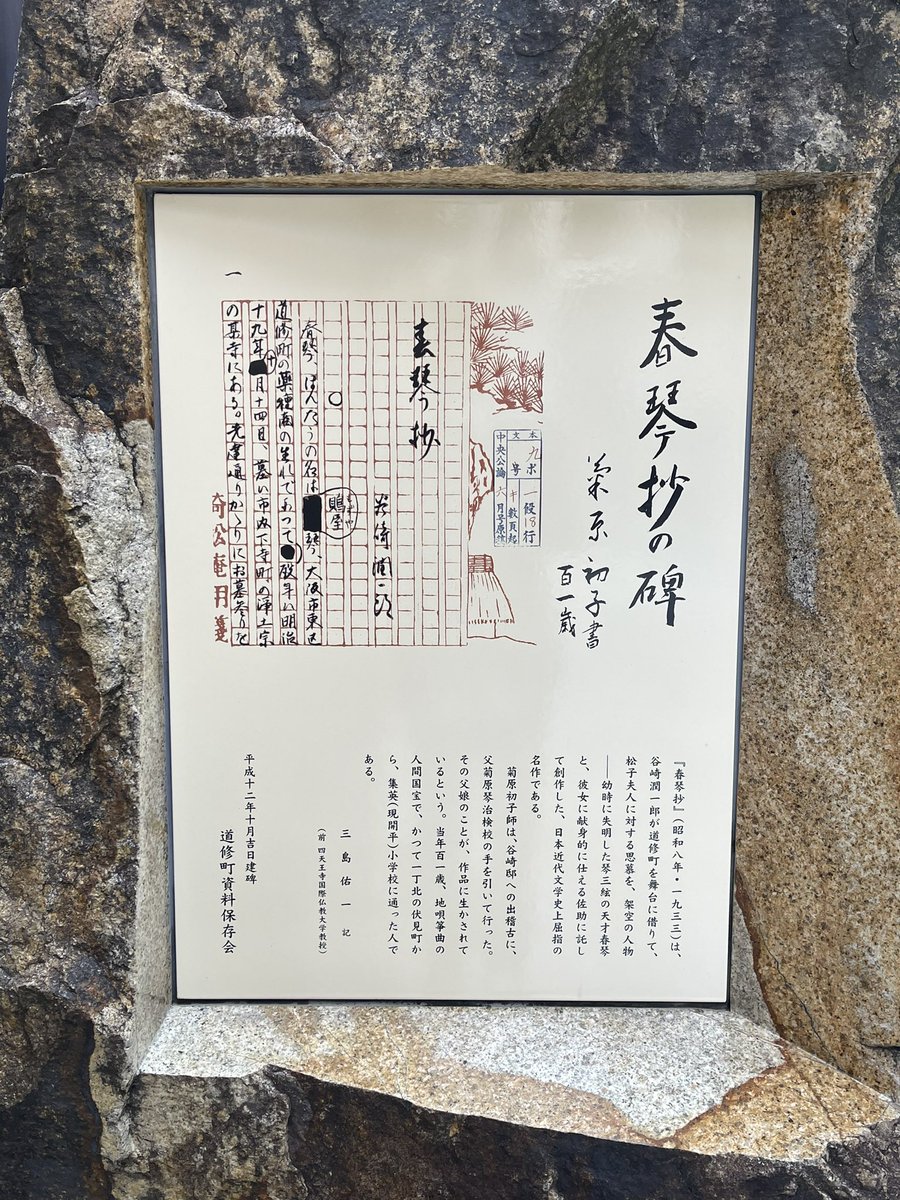 春琴抄の碑
菊原初子書
百一歳
本文 九ポ 一段18行
中央公論 六月号原稿
一
春琴抄
谷崎潤一郎
○
春琴、ほんたうの名は■琴、大阪市東区
道修町の薬種商の生れであつて●歿年は明治
鵙屋
もずや
十九年■十月十四日、墓は市内下寺町の浄土宗
の某寺にある。先達通りかゝりにお墓参りを
『春琴抄』(昭和八年・一九三三)は、
谷崎潤一郎が道修町を舞台に借りて、
松子夫人に対する思慕を、架空の人物
――幼時に失明した琴三絃の天才春琴
と、彼女に献身的に仕える佐助に託し
て創作した、日本近代文学史上屈指の
名作である。
菊原初子師は、谷崎邸への出稽古に、
父菊原琴治検校の手を引いて行った。
その父娘のことが、作品に生かされて
いるという。当年百一歳、地唄箏曲の
人間国宝で、かつて一丁北の伏見町か
ら、集英(現開平)小学校に通った人で
ある。
三島佑一 記
(前 四天王寺国際仏教大学教授)
平成十二年十月吉日建碑
道修町資料保存会